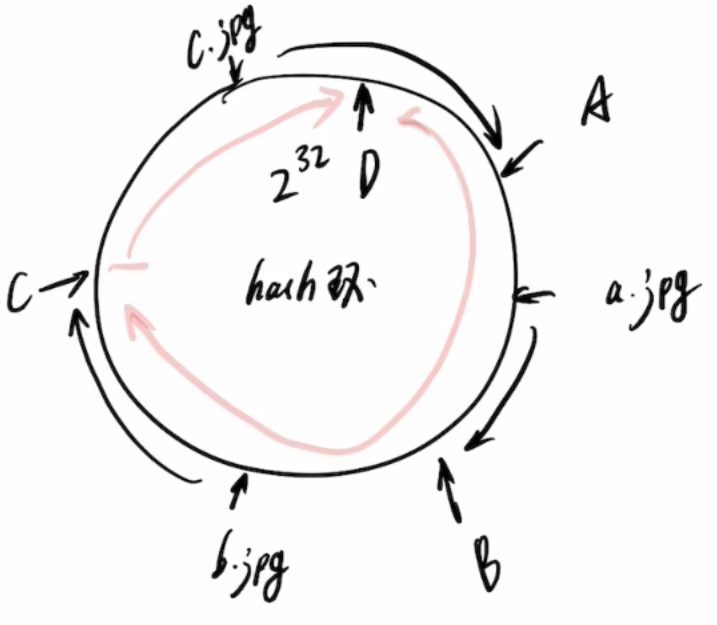 c.jpg
A
2^32
D
hash环
C
a.jpg
b.jpg
B